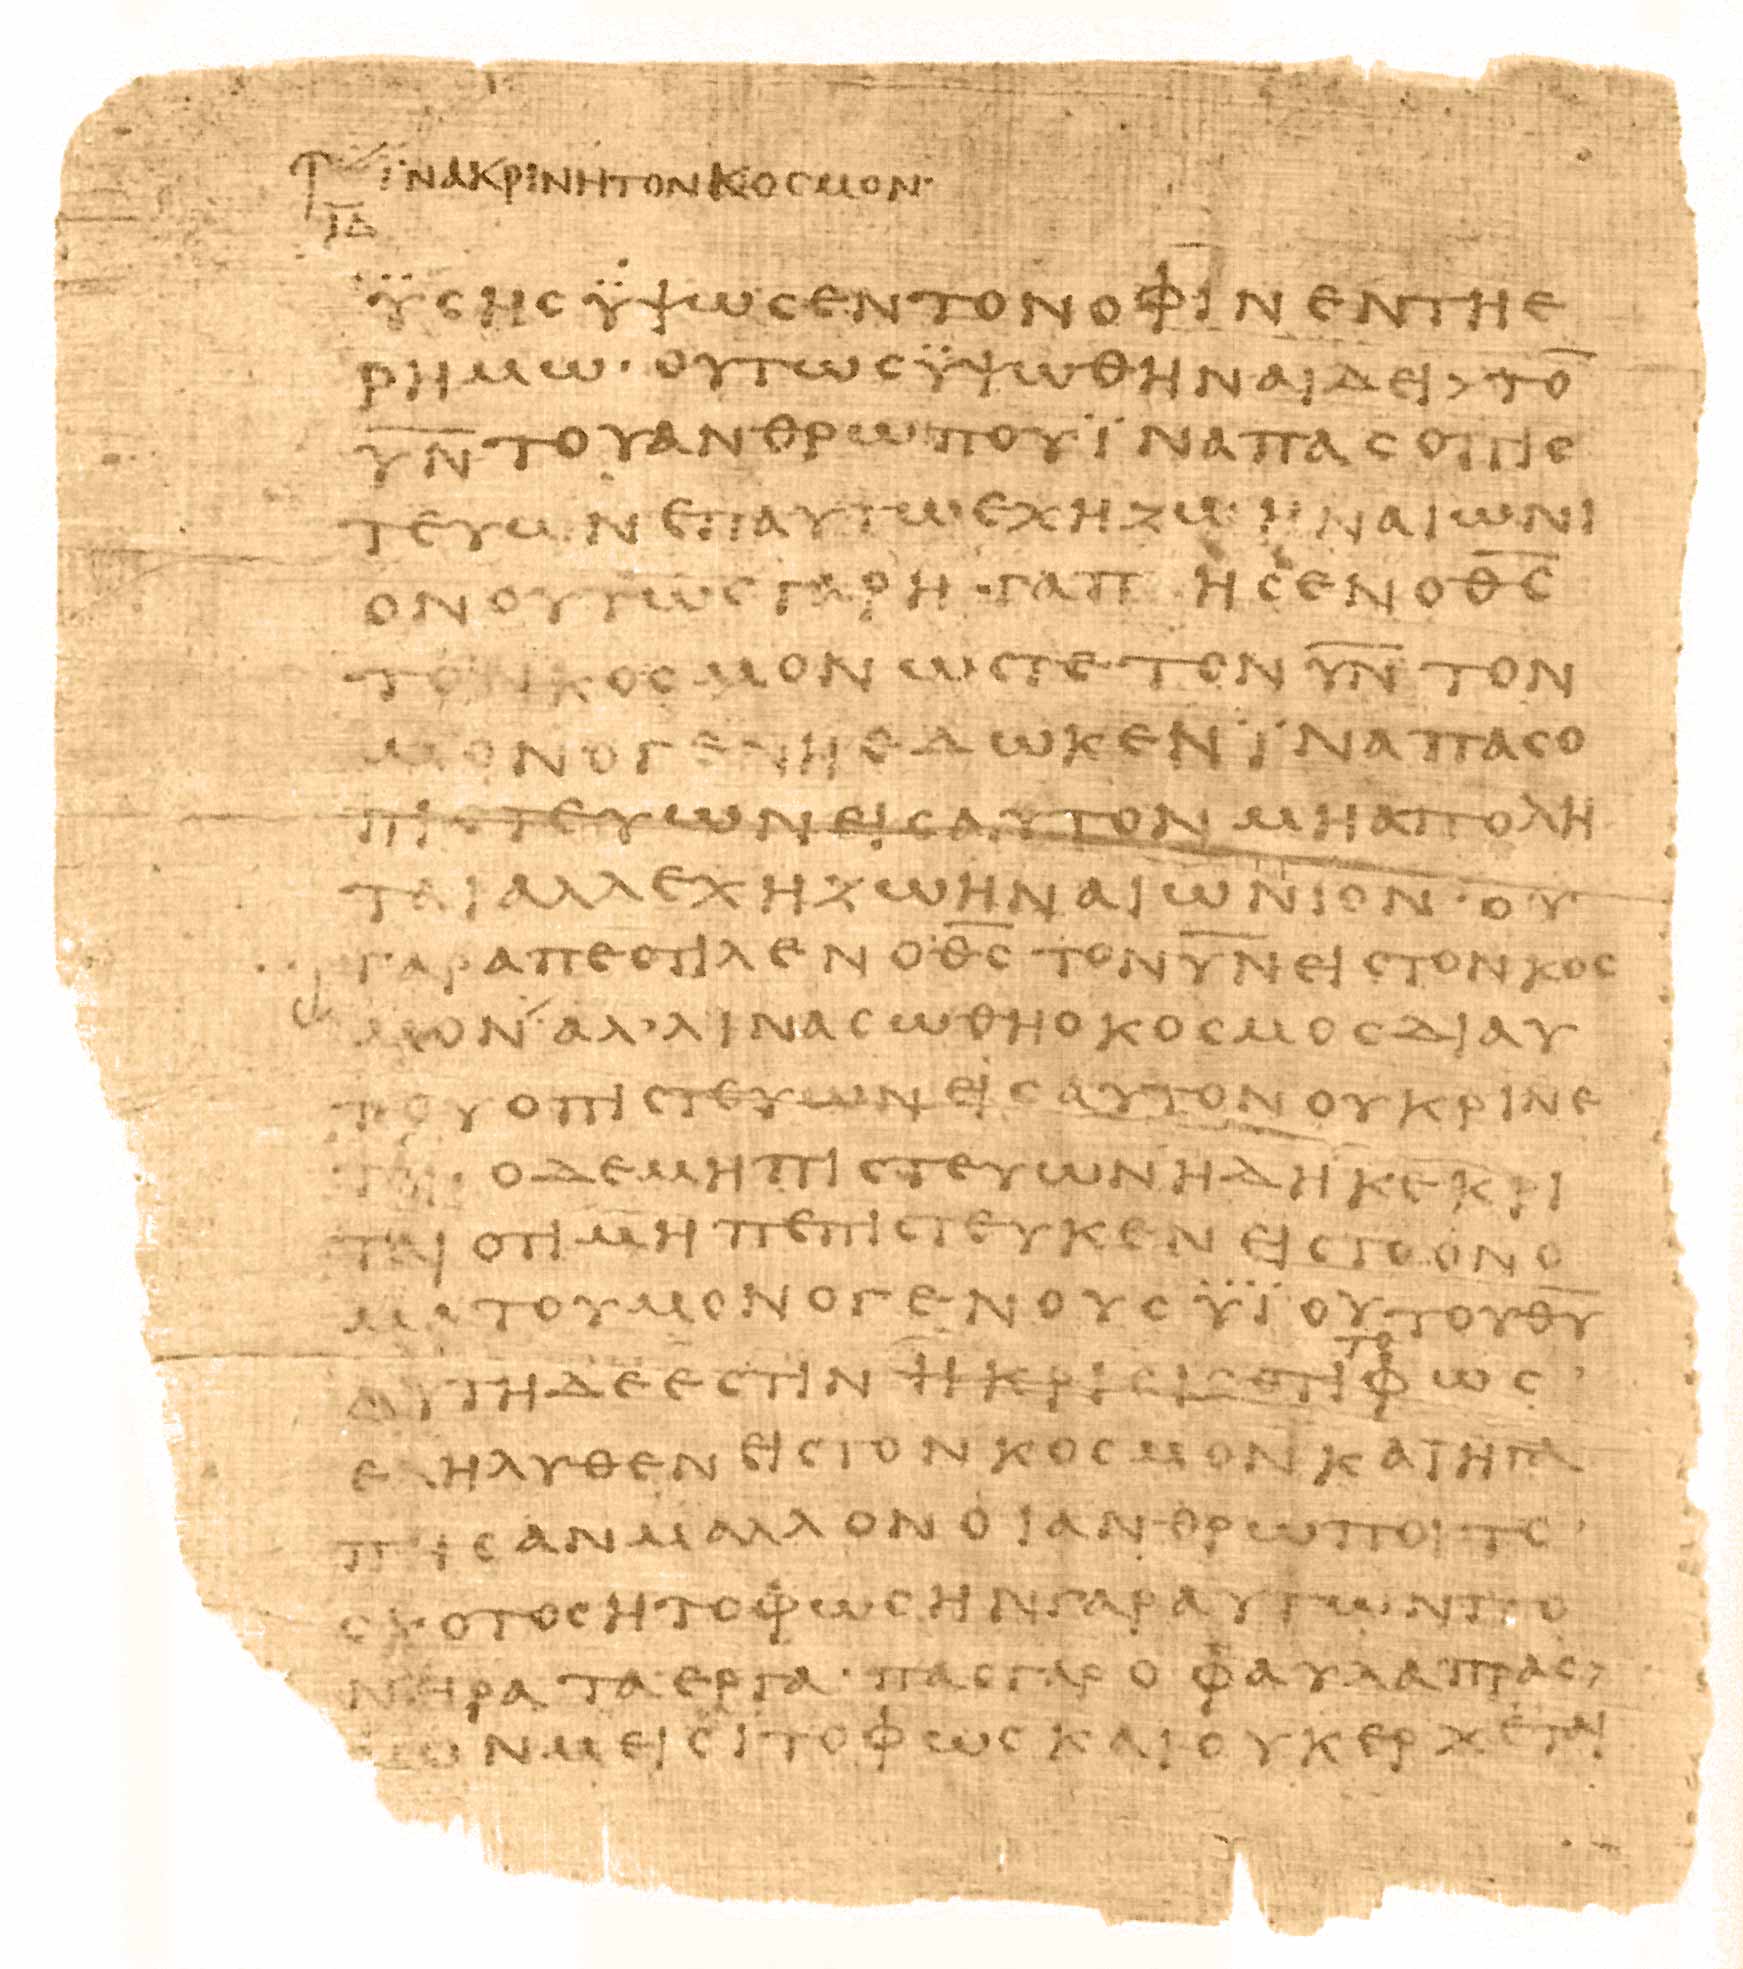 ἵνακρινητονκοσμον·
ιδ
ϋσηςϋψωσεντονοφινεντηε
ρημω·ουτωςϋψωθηναιδει>το̅
υ̅ν̅τουανθρωπουϊναπασοπιε
τευωνεπαυτωεχηζωηναιωνι
ονουτωςγαρηγαπησενοθ̅ς̅
τονκοσμονωστετονυ̅ν̅τον
μονογενηεδωκενϊναπασο
πιστευωνειςαυτονμηαπολη
ταιαλλεχηζωηναιωνιον·ου
γαραπεστιλενοθ̅ς̅τονυ̅ν̅ειςτονκος
μοναλ᾽λινασωθηοκοσμοςδιαυ
τουοπιστευωνειςαυτονουκρινε
ται·οδεμηπιστευωνηδηκεκρι
ταιοτιμηπεπιστευκενειςτοονο
ματουμονογενουςϋϊουτουθ̅υ̅
αυτηδεεστινηκρισιςοτι`το´φως
εληλυθενειςτονκοσμονκαιηγα
πησανμαλλονοιανθρωποιτο
σκοτοςητοφωςηνγαραυτωνπο
νηρα ταεργα·πασγαροφαυλαπρας>
σωνμεισιτοφωςκαιουκερχεται